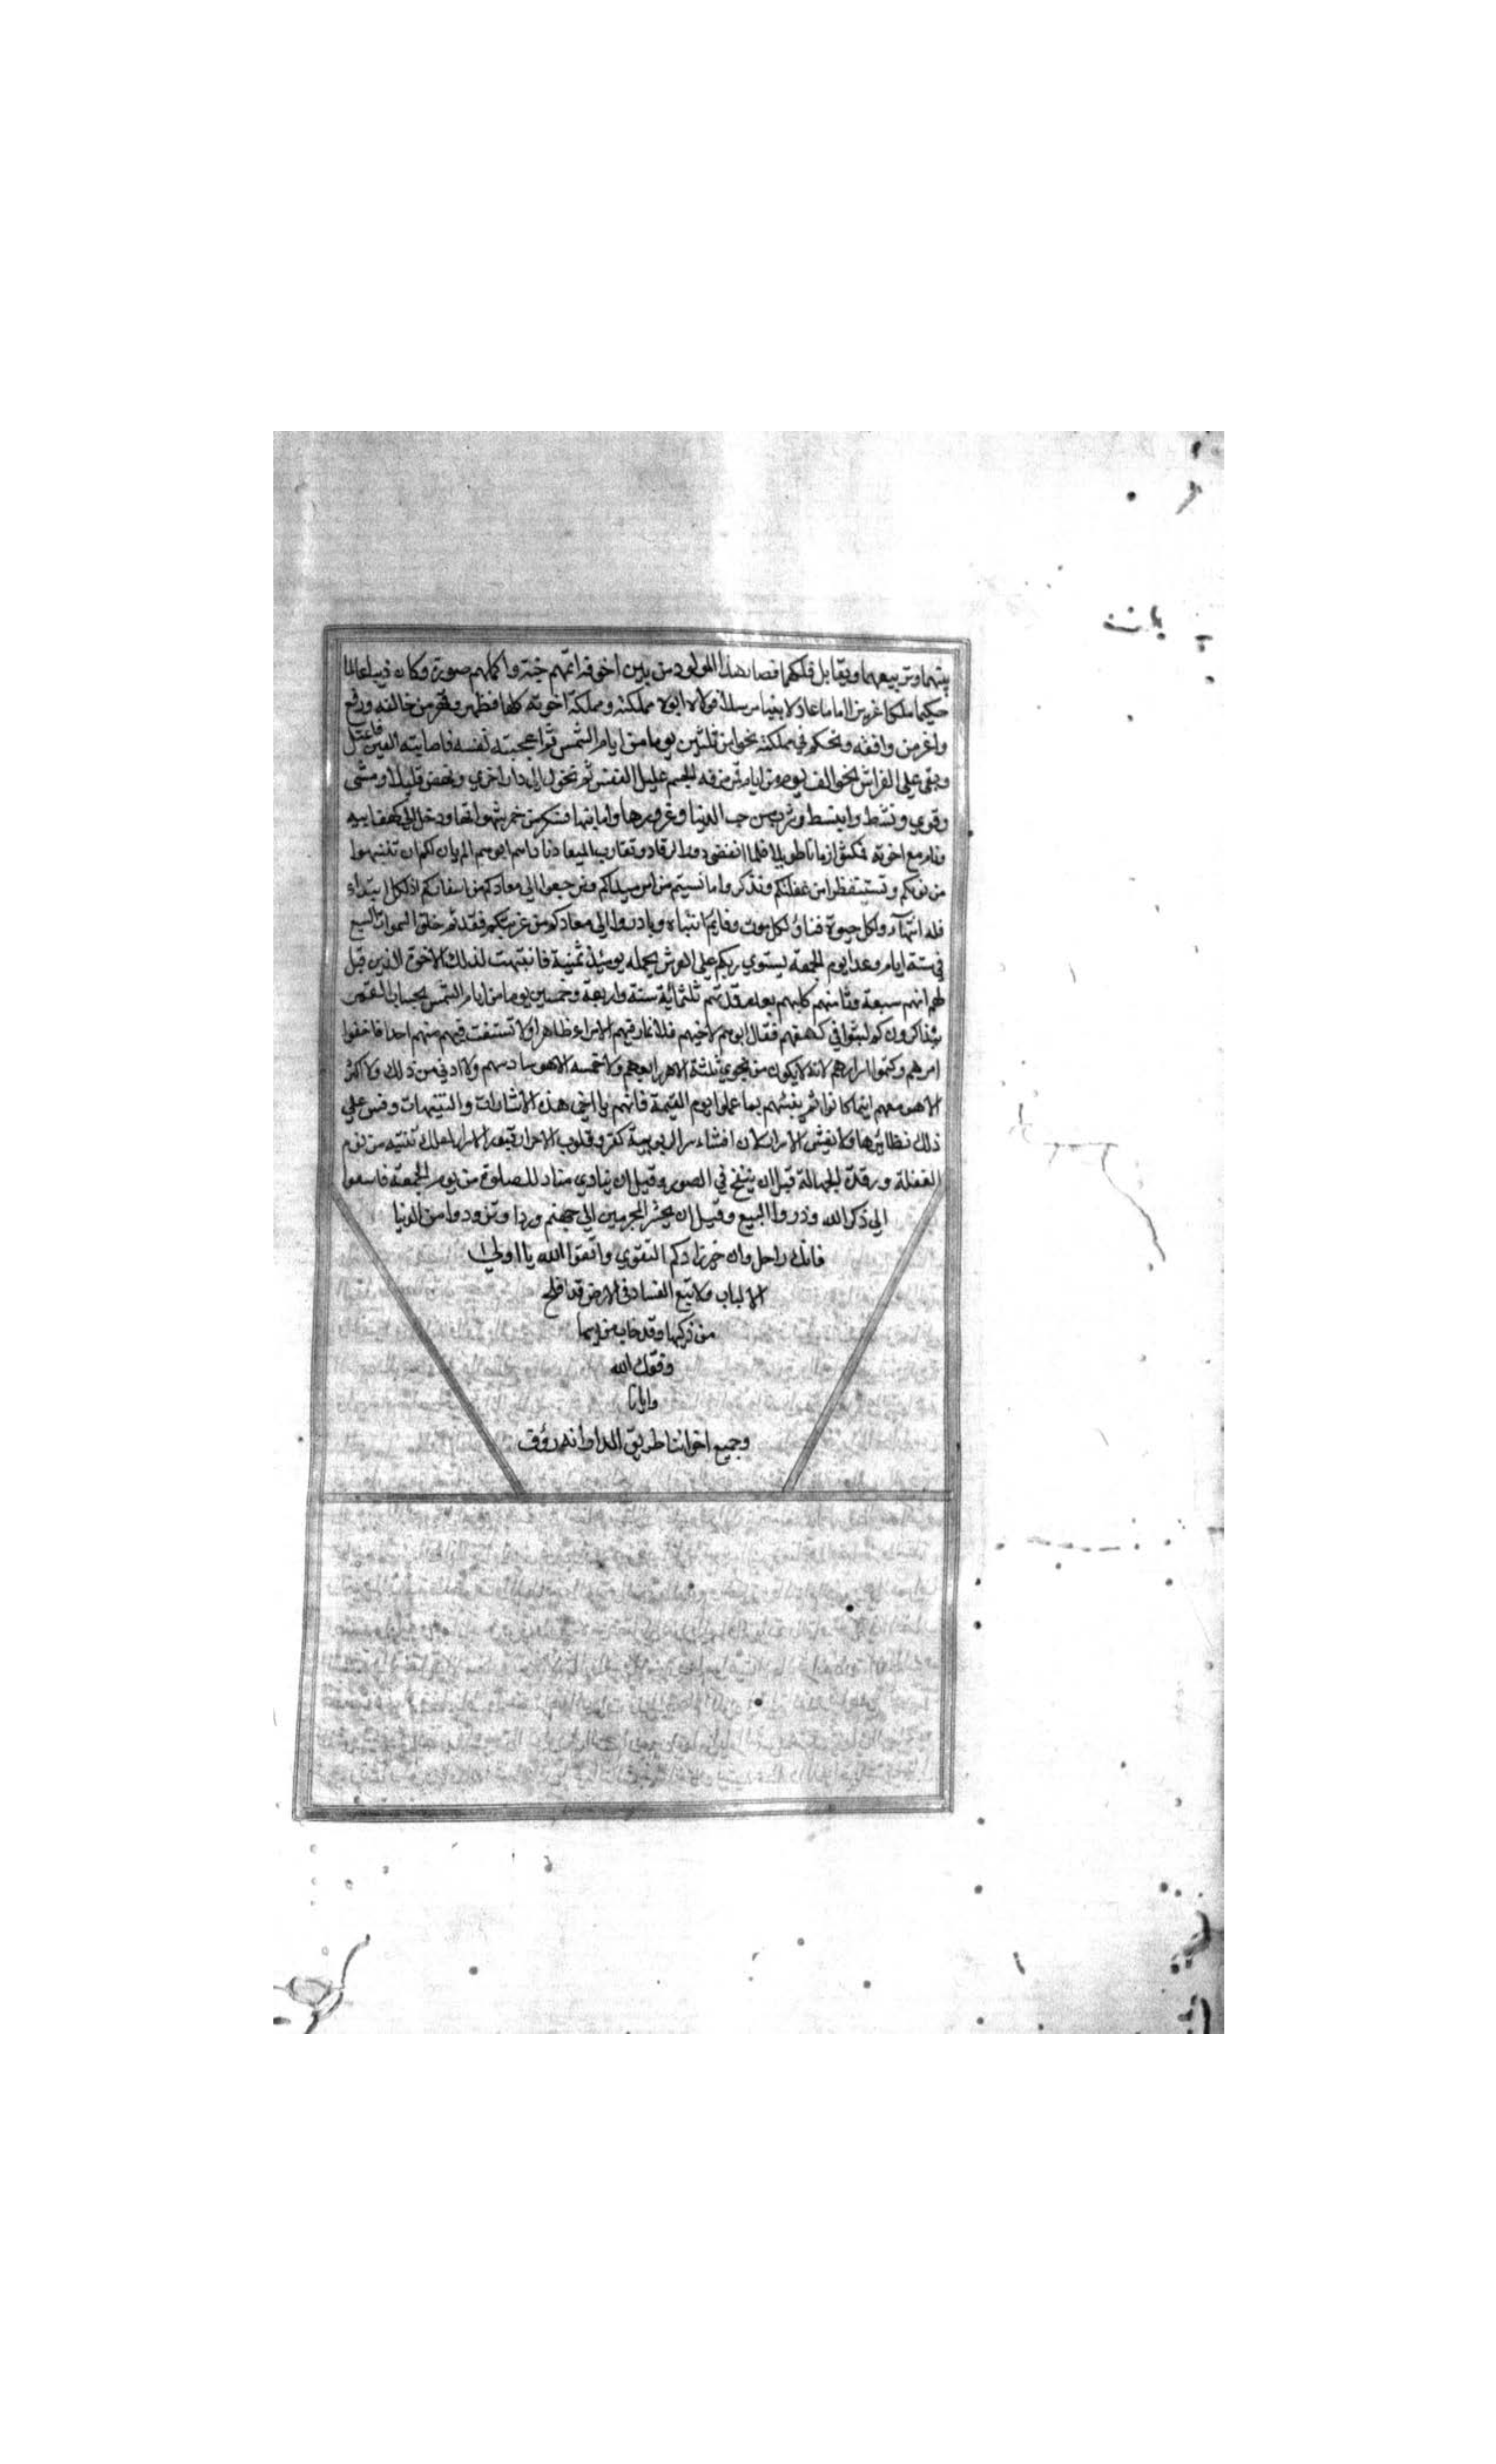 بيتهما وتربيعهما ويقابل فلكهما فصار هذا المولود من بين اخوته اتمهم خبة واكملهم صورة وكان دينا عالما
حكيما ملكا عزيزا اماما عادلا نبيا مرسلا فولاه ابوه مملكته ومملكة اخوته كلها فظهر وقهر من خالفه ورفع
واعز من وافقه وتحكم في مملكته نحوا من ثلثين يوما من ايام الشمس ثم اعجبته نفسه فاصابته العين فاعتل
وبقى علي الفراش نحو الف يوم من ايام الجسم عليل النفس ثم تحول الي دار اخري ونهض قليلا ومشى
وقوي ونشط وانبسط وشرب من حب الدنيا وغرورها وامانيها فسكر من خمر شهواتها ودخل الي كهف ابيه
ونام مع اخوته فمكثوا زمانا طويلا فلما انقضى دور الرقاد وتقارب الميعاد ناداهم ابوهم الم يان لكم ان تنتبهوا
من نومكم وتستيقظوا من غفلتكم وتذكروا ما نسيتم من امر مبداكم وترجعوا الي معادكم من اسفاركم اذ لكل ابتداء
فله انتهاء ولكل حيوة فناء ولكل موت وقايم انتباه وبادروا الي معادكم من غربتكم فقد تم خلق السموات السبع
في ستة ايام وغدا يوم الجمعة يستوي ربكم علي العرش يحمله يومئذ ثمنية فانتبهت لذلك الاخوة الذين قيل
لهم انهم سبعة وثامنهم كلبهم بعد ما قد تم ثلثمائة ستة واربعة وخمسين يوما من ايام الشمس بحساب القمر
يتذاكرون كم لبثوا في كهفهم فقال ابوهم لاخيهم فلا تمار فيهم الا مراء ظاهرا ولا تستفت فيهم منهم احدا فاخفوا
امرهم وكتموا اسرارهم لانه لا يكون من نجوي ثلثة الا هو رابعهم ولا خمسة الا هو سادسهم ولا ادني من ذلك ولا اكثر
الا هو معهم اينما كانوا ثم ينبئهم بما عملوا يوم القيمة فافهم يا اخي هذه الاشارات والتنبيهات وقس علي
ذلك نظايرها ولا تفش الاسرار لان افشاء سر الربوبية كفر وقلوب الاحرار قبور الاسرار لعلك تنتبه من نوم
الغفلة ورقدة الجهالة قبل ان ينفخ في الصور وقبل ان ينادي مناد للصلوة من يوم الجمعة فاسعوا
الي ذكر الله وذروا البيع وقبل ان يحشر المجرمين الي جهنم وردا وتزودوا من الدنيا
فانك راحل وان خير زادكم التقوي واتقوا الله يا اولي
الالباب ولا تبع الفساد في الارض قد افلح
من زكيها وقد خاب من دسيها
وفقك الله
وايانا
وجميع اخواننا طريق السداد انه رؤف